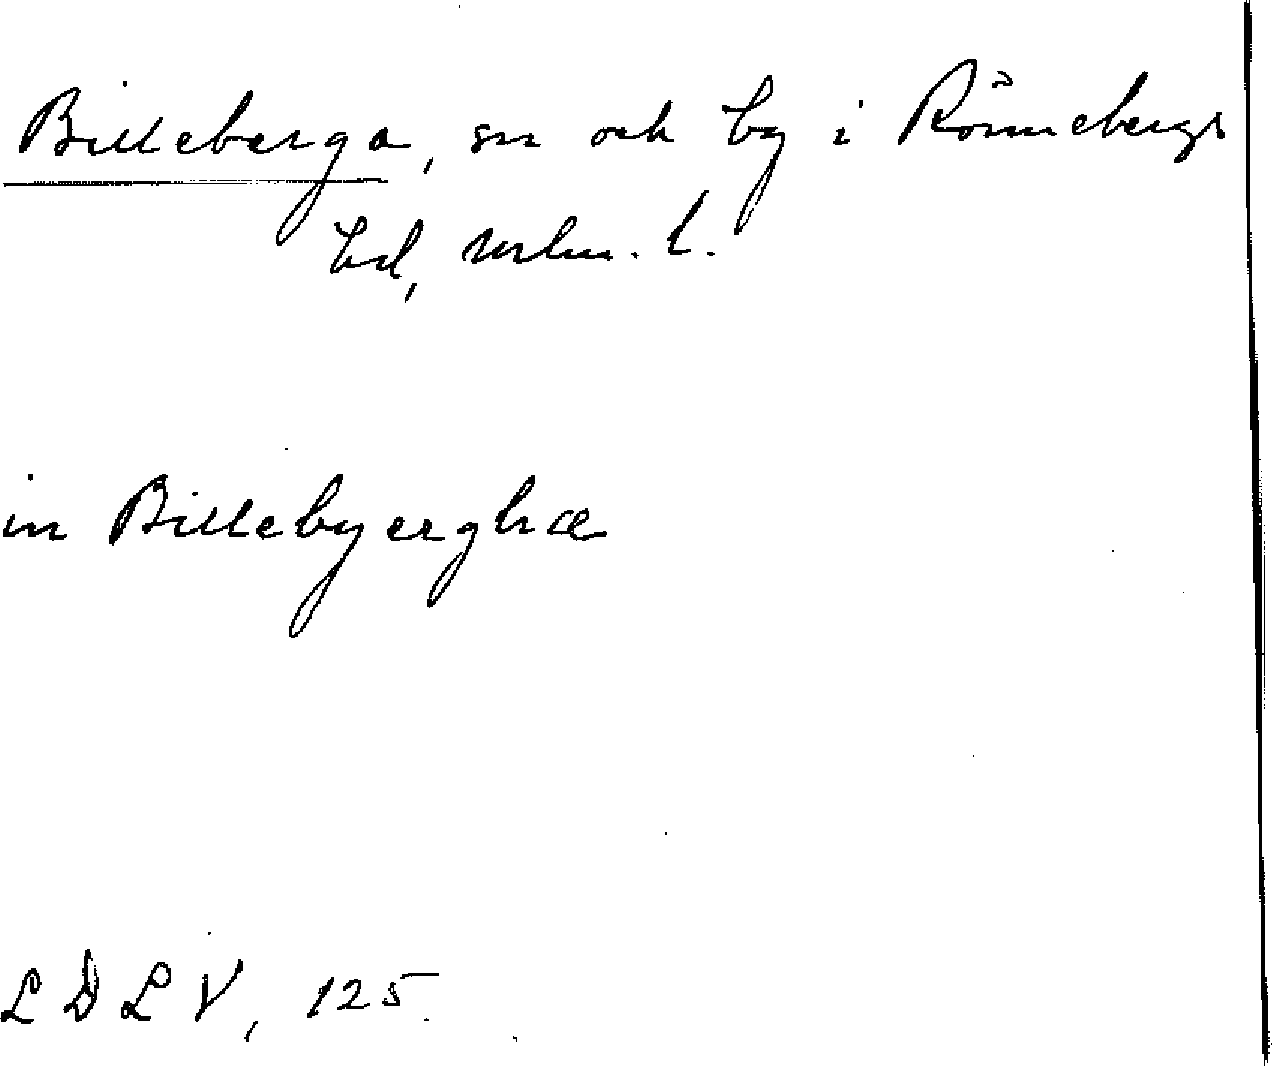 Billeberga, sn och by i Rönnebergs
hd, Malm. l.
in Billebyerghæ
L D L V, 125.